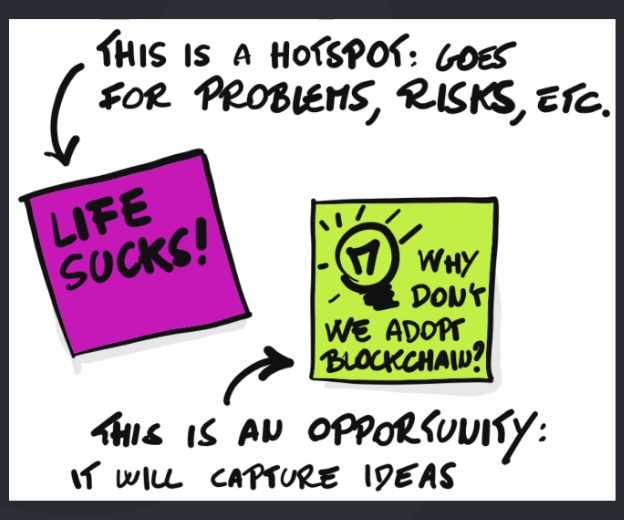 THIS IS A HOTSPOT: GOES
FOR PROBLEMS, RISKS, ETC.
LIFE
SUCKS!
WHY
DON'T
WE ADOPT
BLOCKCHAIN?
THIS IS AN OPPORTUNITY:
IT WILL CAPTURE IDEAS